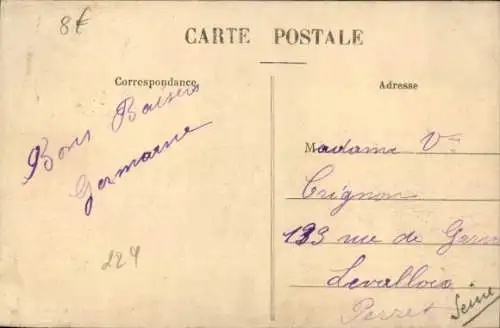 8€
CARTE POSTALE
Correspondance
Adresse
Bons Baisers
Germaine
Madame Vve
Crignon
133 rue de
Levallois
Perret
Seine
224